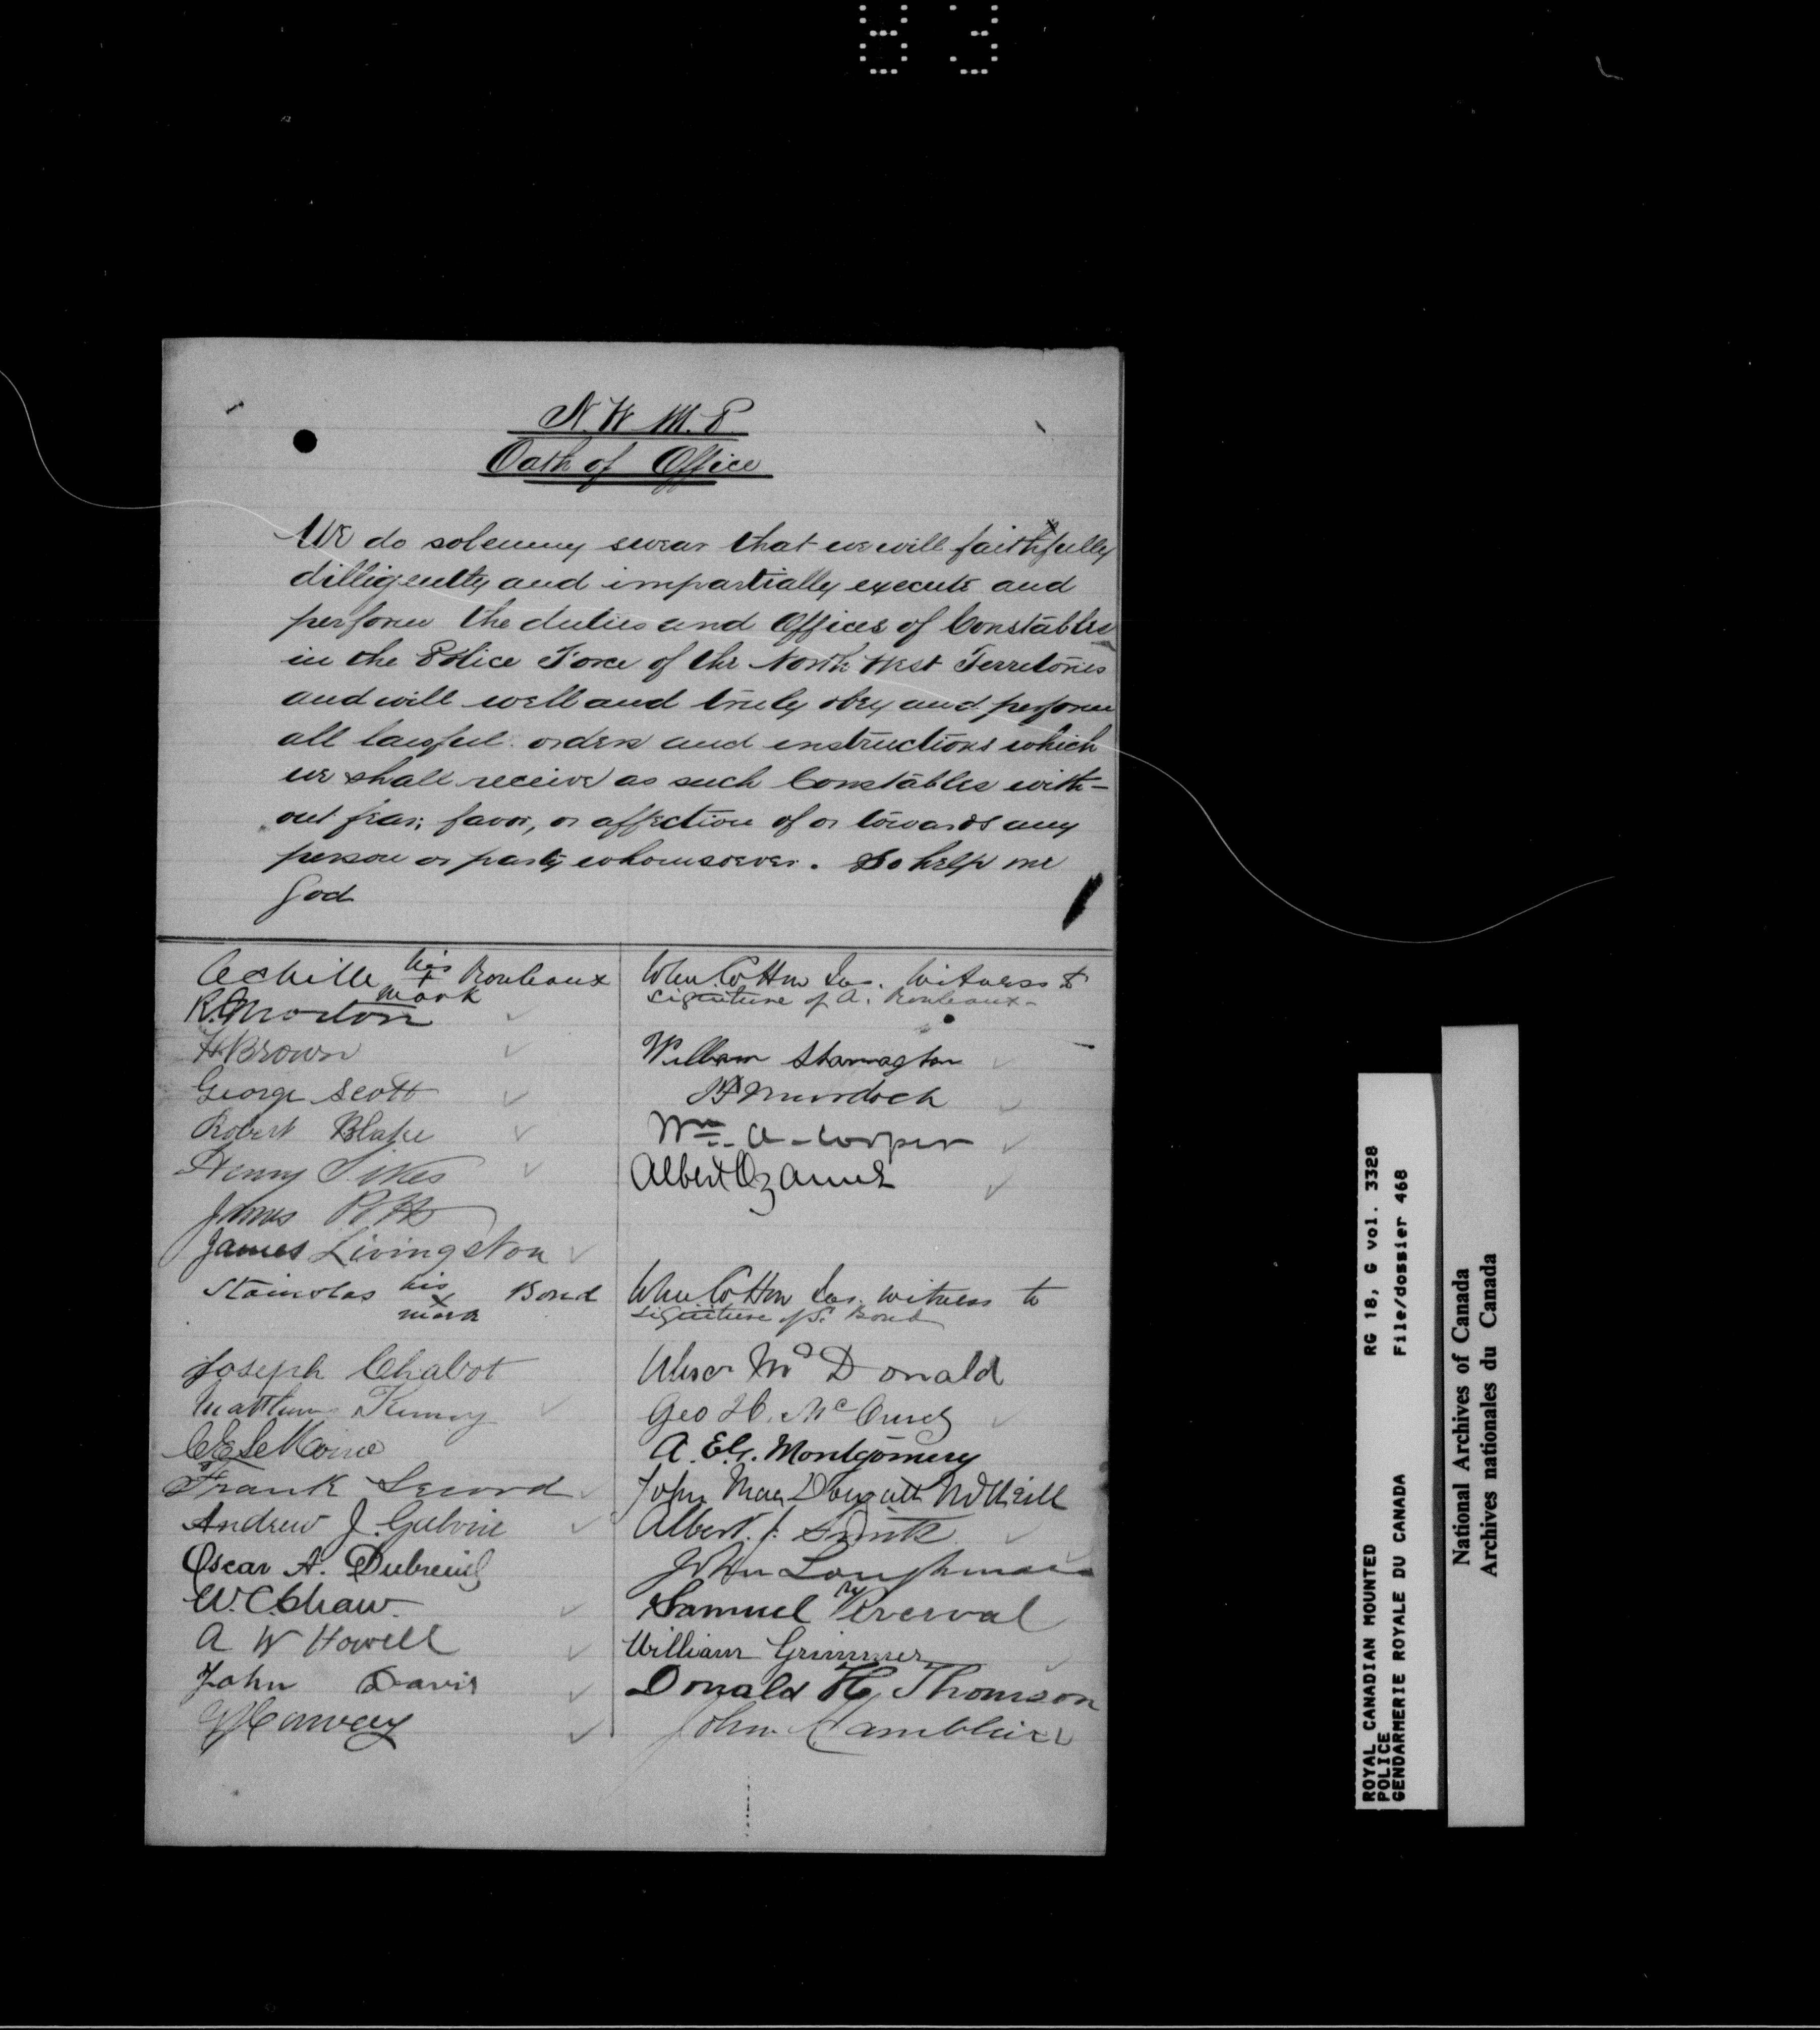 83
N. W. M. P
Oath of Office
We do solemny swear that we will faithfully
dilligently and impartially execute and
perform the duties and Offices of Constables
in the Police Force of the North West Territories
and will well and truly obey and perform
all lawful orders and instructions which
we shall receive as such Constables with-
out fear, favor, or affection of or towards any
person or party whomsoever. So help me
God
Achille his + mark Rouleaux
R. Morton
H Brown
George Scott
Robert Blake
Henry Sikes
James Potts
James Livingston
his x mark Bond
Joseph Chabot
Matthew
C E LeMoine
Frank Secord
Andrew J.
Oscar A. Dubreuil
W. C. Shaw.
A W Howell
John Davis
Harvey
Cotton witness to
signature of A. Rouleaux-
William
Murdoch
Wm. A- Cooper
Albert
Cotton witness to
signature of S. Bond
McDonald
Geo H. Mc
A. E. G. Montgomery
John Mac
Albert. J. Smith
John
Samuel Perceval
William Grimmer
Donald H. Thomson
John
ROYAL CANADIAN MOUNTED
POLICE
GENDARMERIE ROYALE DU CANADA
RG 18, G vol. 3328
File/dossier 468
National Archives of Canada
Archives nationales du Canada